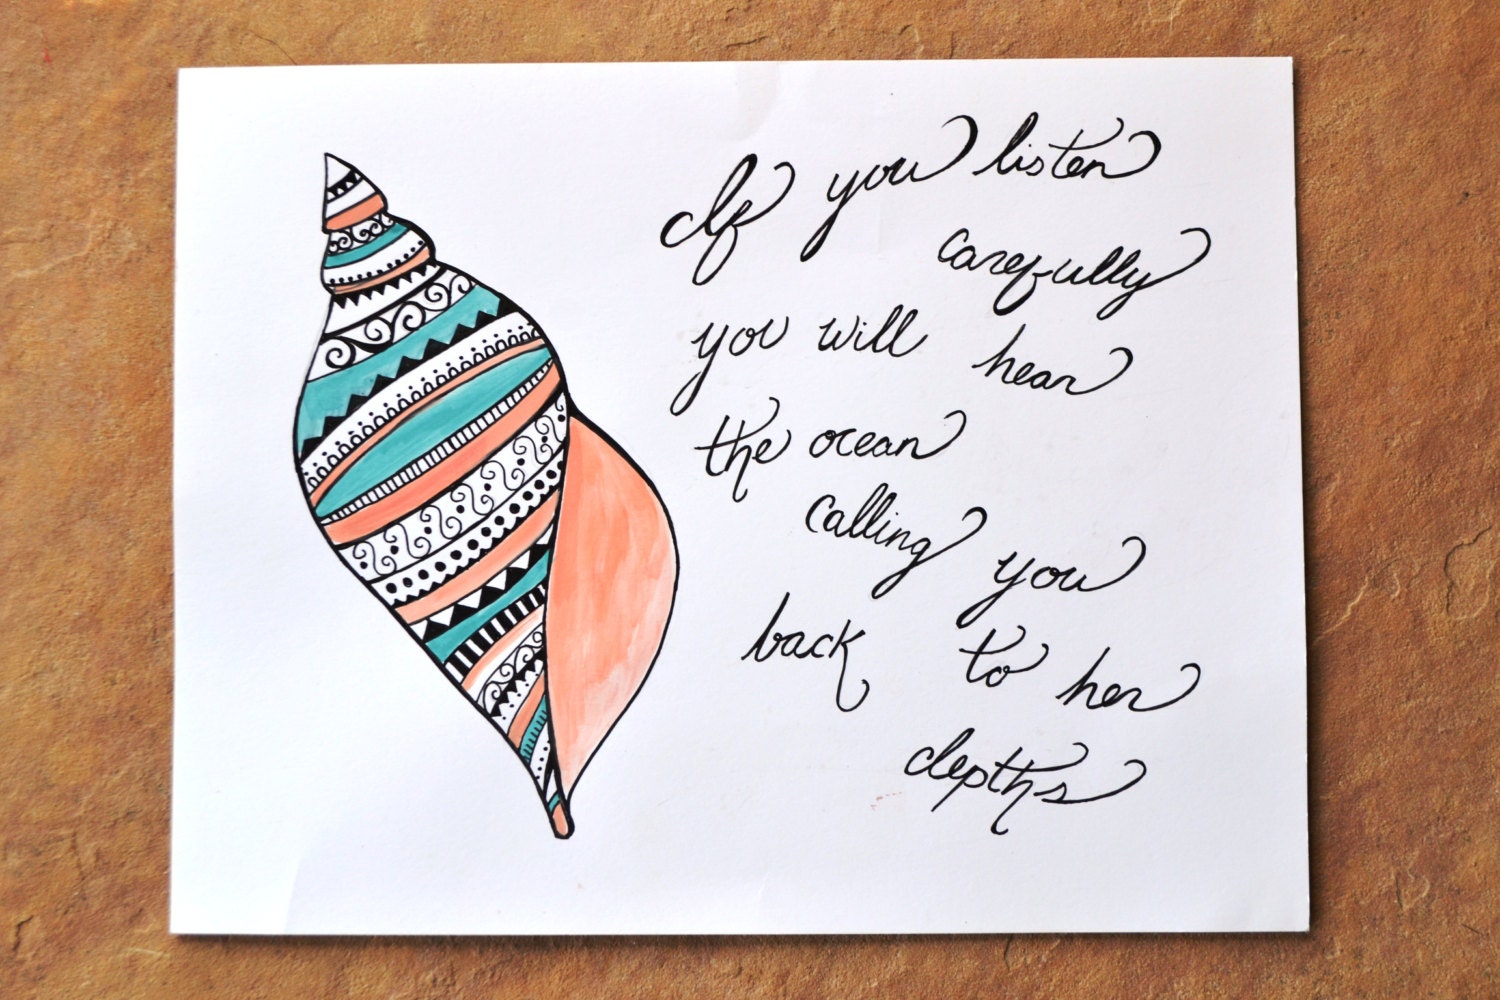 If you listen
carefully
you will hear
the ocean
calling you
back to her
depths